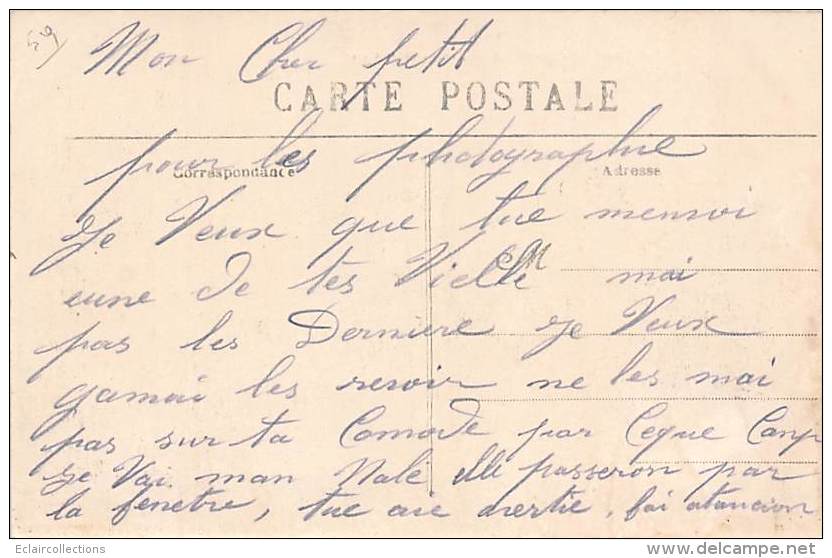 59
Mon Cher petit
CARTE POSTALE
pour les photographie
Correspondance
Adresse
Je Veux que tue mensoi
eune de tes Vielle mai
pas les Derniere Je Veux
gamai les resevoir ne les mai
pas sur ta Comode par Ceque Canp
Je Vai man Nale elle passeron par
la fenetre, tue aie avertie, fai atancion
Eclaircollections
www.delcampe.net